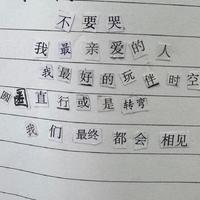 不要哭
我最亲爱的人
我最好的玩伴时空
圆圈直行或是转弯
我们最终都会相见